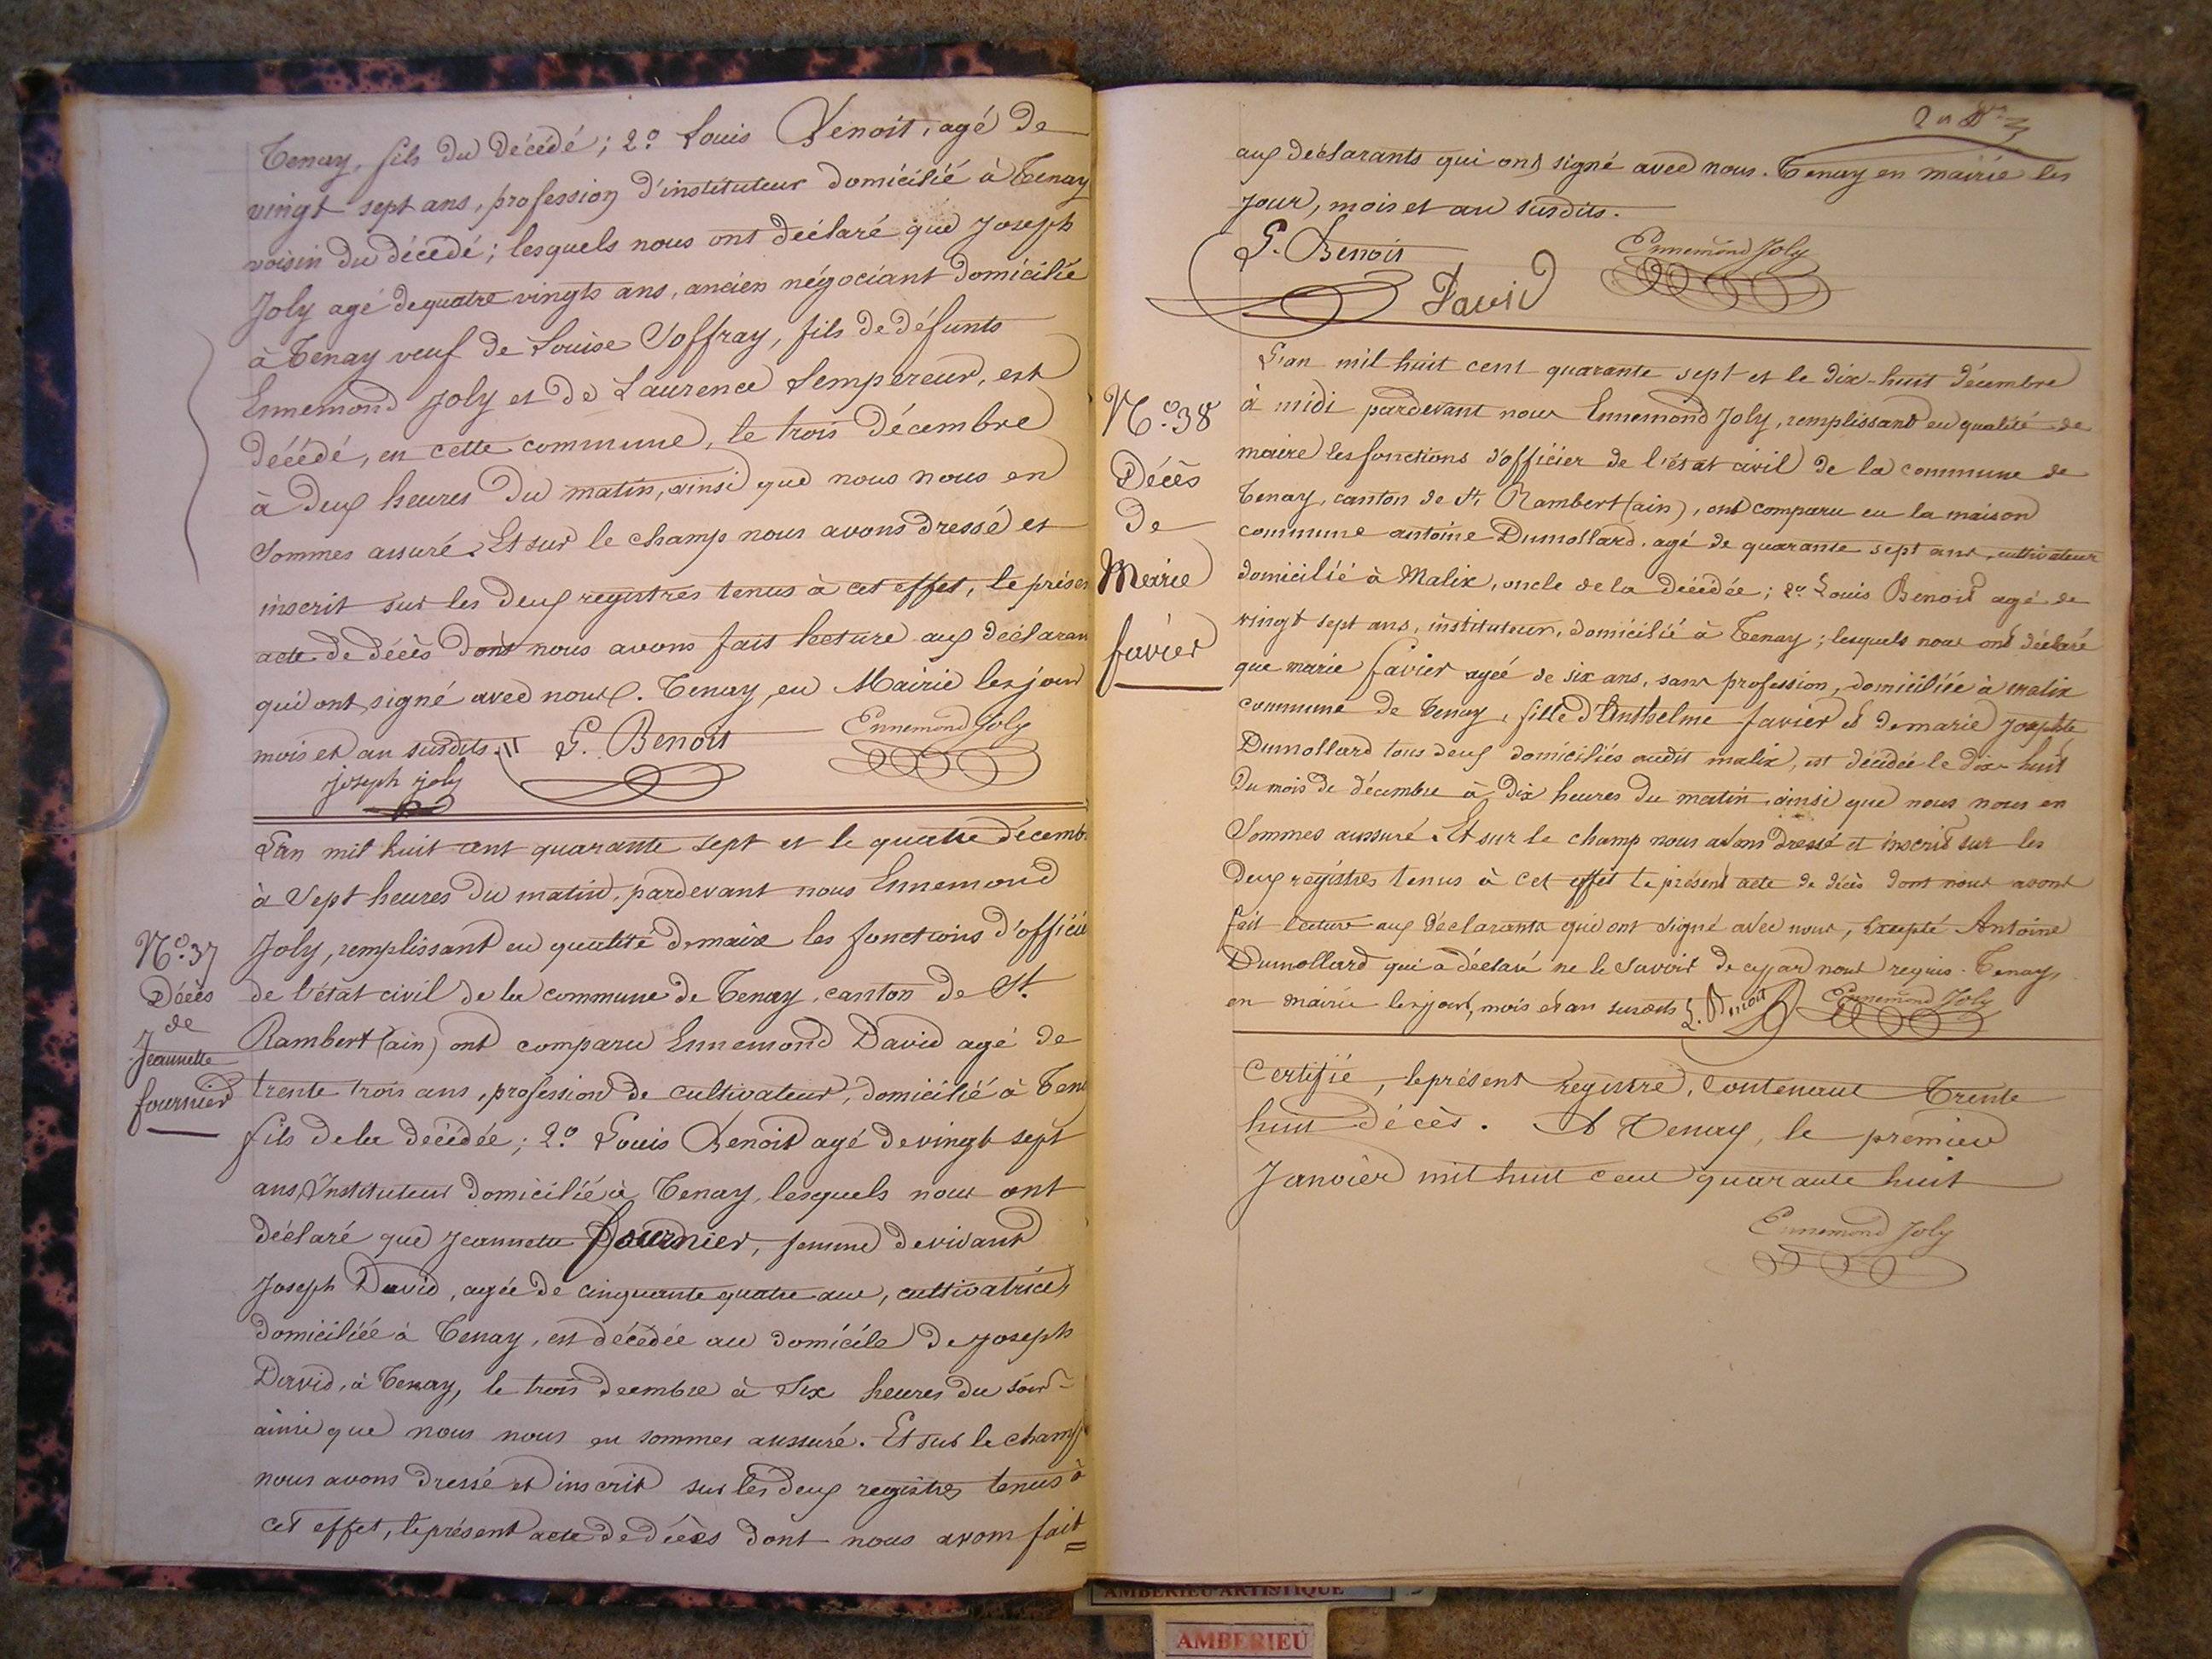 Tenay, fils du décédé; 2.º Louis Benoit, agé de
vingt sept ans, profession d'instituteur domicilié à Tenay
voisin du décédé; lesquels nous ont déclaré que Joseph
Joly agé de quatre vingts ans, ancien négociant domicilié
à Tenay veuf de Louise Joffray, fils de défunts
Ennemond Joly et de Laurence Lempereur, est
décédé, en cette commune, le trois décembre
à deux heures du matin, ainsi que nous nous en
sommes assuré. Et sur le champ nous avons dressé et
inscrit sur les deux registres tenus à cet effet, le présen
acte de décès dont nous avons fait lecture aux déclaran
qui ont signé avec nous. Tenay, en Mairie les jour
mois et an susdits. L. Benoit Ennemond Joly
joseph joly
N.º 37
Décès
de
Jeannette
fournier
L'an mil huit cent quarante sept et le quatre décemb
à sept heures du matin, pardevant nous Ennemond
Joly, remplissant en qualité de maire les fonctions d'officie
de l'état civil de la commune de Tenay, canton de St.
Rambert (ain) ont comparu Ennemond David agé de
trente trois ans, profession de cultivateur, domicilié à Tena
fils de la décédée; 2.º Louis Benoit agé de vingt sept
ans, Instituteur domicilié à Tenay, lesquels nous ont
déclaré que Jeannette fournier, femme de vivant
Joseph David, agée de cinquante quatre ans, cultivatrice,
domiciliée à Tenay, est décédée au domicile de Joseph
David, à Tenay, le trois decembre à six heures du soir
ainsi que nous nous en sommes aussuré. Et sur le champ
nous avons dressé et inscrit sur les deux registres tenus à
cet effet, le présent acte de décès dont nous avons fait =
aux déclarants qui ont signé avec nous. Tenay en mairie les
jour, mois et an susdits.
L. Benoit Ennemond Joly
David
N.º 38
Décès
de
Marie
favier
L'an mil huit cent quarante sept et le dix-huit décembre
à midi pardevant nous Ennemond Joly, remplissant en qualité de
maire les fonctions d'officier de l'état civil de la commune de
Tenay, canton de St. Rambert (ain), ont comparu en la maison
commune antoine Dumollard, agé de quarante sept ans, cultivateur
domicilié à Malix, oncle de la décédée; 2.º Louis Benoit agé de
vingt sept ans, instituteur, domicilié à Tenay; lesquels nous ont déclaré
que marie favier agée de six ans, sans profession, domiciliée à malix
commune de Tenay, fille d'Anthelme favier et de marie josephte
Dumollard tous deux domiciliés audit malix, est décédée le dix-huit
du mois de décembre à dix heures du matin, ainsi que nous nous en
sommes aussuré. Et sur le champ nous avons dressé et inscrit sur les
deux régistres tenus à cet effet le présent acte de décès dont nous avons
fait lecture aux déclarants qui ont signé avec nous, excepté Antoine
Dumollard qui a déclaré ne le savoir de ce par nous requis. Tenay,
en mairie les jour, mois et an susdits L. Benoit Ennemond Joly
Certifié, le présent registre, contenant trente
huit décès. A Tenay, le premier
Janvier mil huit cent quarante huit
Ennemond Joly
AMBERIEU ARTISTIQUE
AMBERIEU